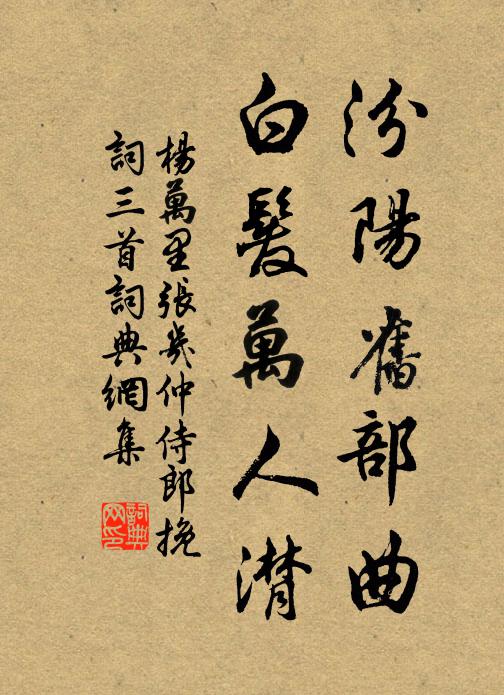 汾陽舊部曲
白髮萬人潸
楊萬里張幾仲侍郎挽
詞三首詞典網集
詞典網印